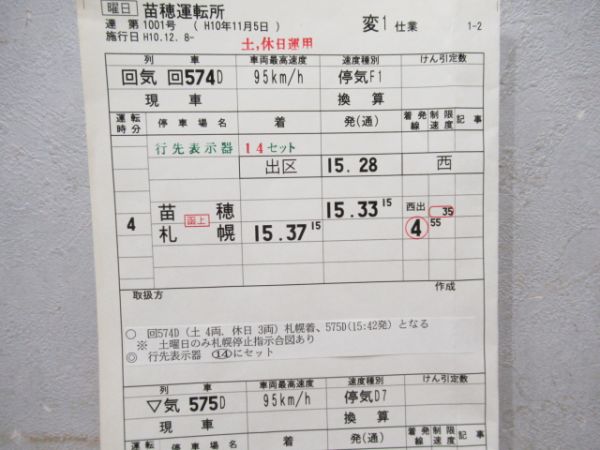 曜日 苗穂運転所
運 第1001号 (H10年11月5日) 変1仕業 1-2
施行日 H10.12. 8-
土,休日運用
列 車 車両最高速度 速度種別 けん引定数
回気 回574D 95km/h 停気F1
現 車 換 算
運転時分 停 車 場 名 着 発(通) 着発線 制限速度 記 事
行先表示器 14セット
出区 15.28 西
苗 穂 15.33 15 西出 35
4 函上
札 幌 15.37 15 4 55
取扱方 作成
○ 回574D (土 4両、休日 3両) 札幌着、575D(15:42発) となる
※ 土曜日のみ札幌停止指示合図あり
◎ 行先表示器 ⑭にセット
列 車 車両最高速度 速度種別 けん引定数
▽気 575D 95km/h 停気D7
現 車 換 算
運転 停 車 場 名 着 発(通) 着発 制限 記 事